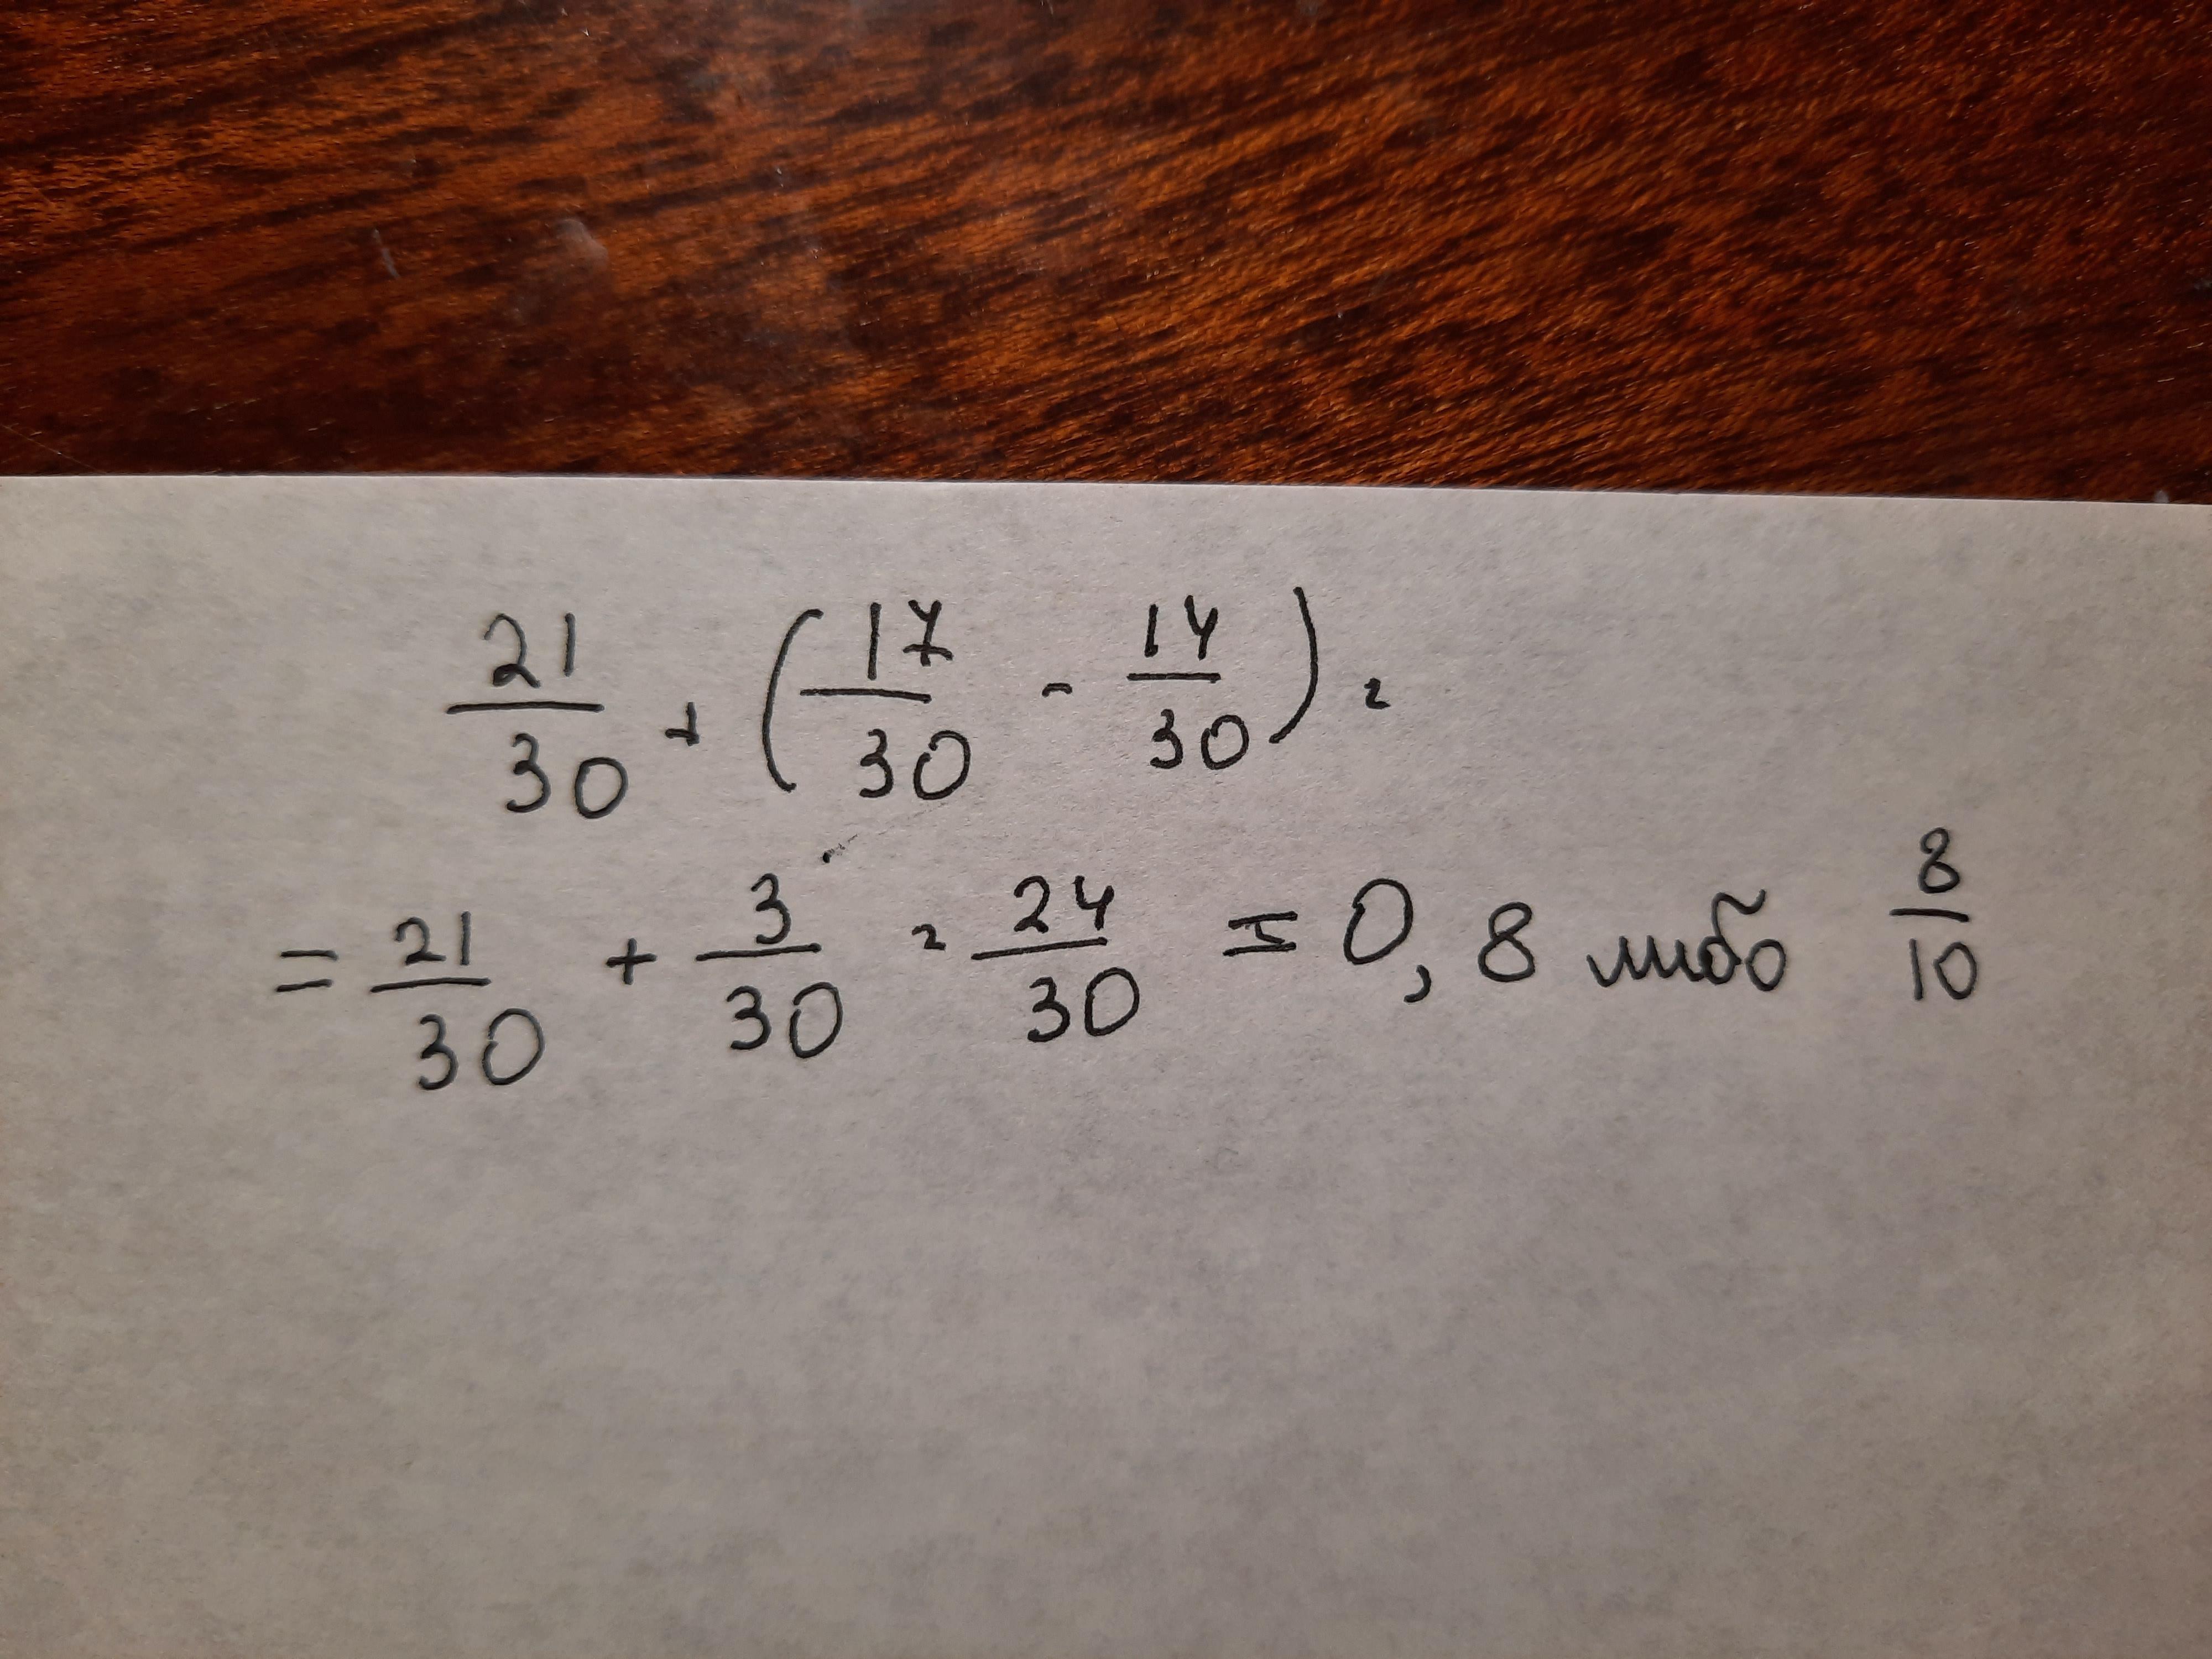 21/30 + (17/30 - 14/30) =
= 21/30 + 3/30 = 24/30 = 0,8 либо 8/10